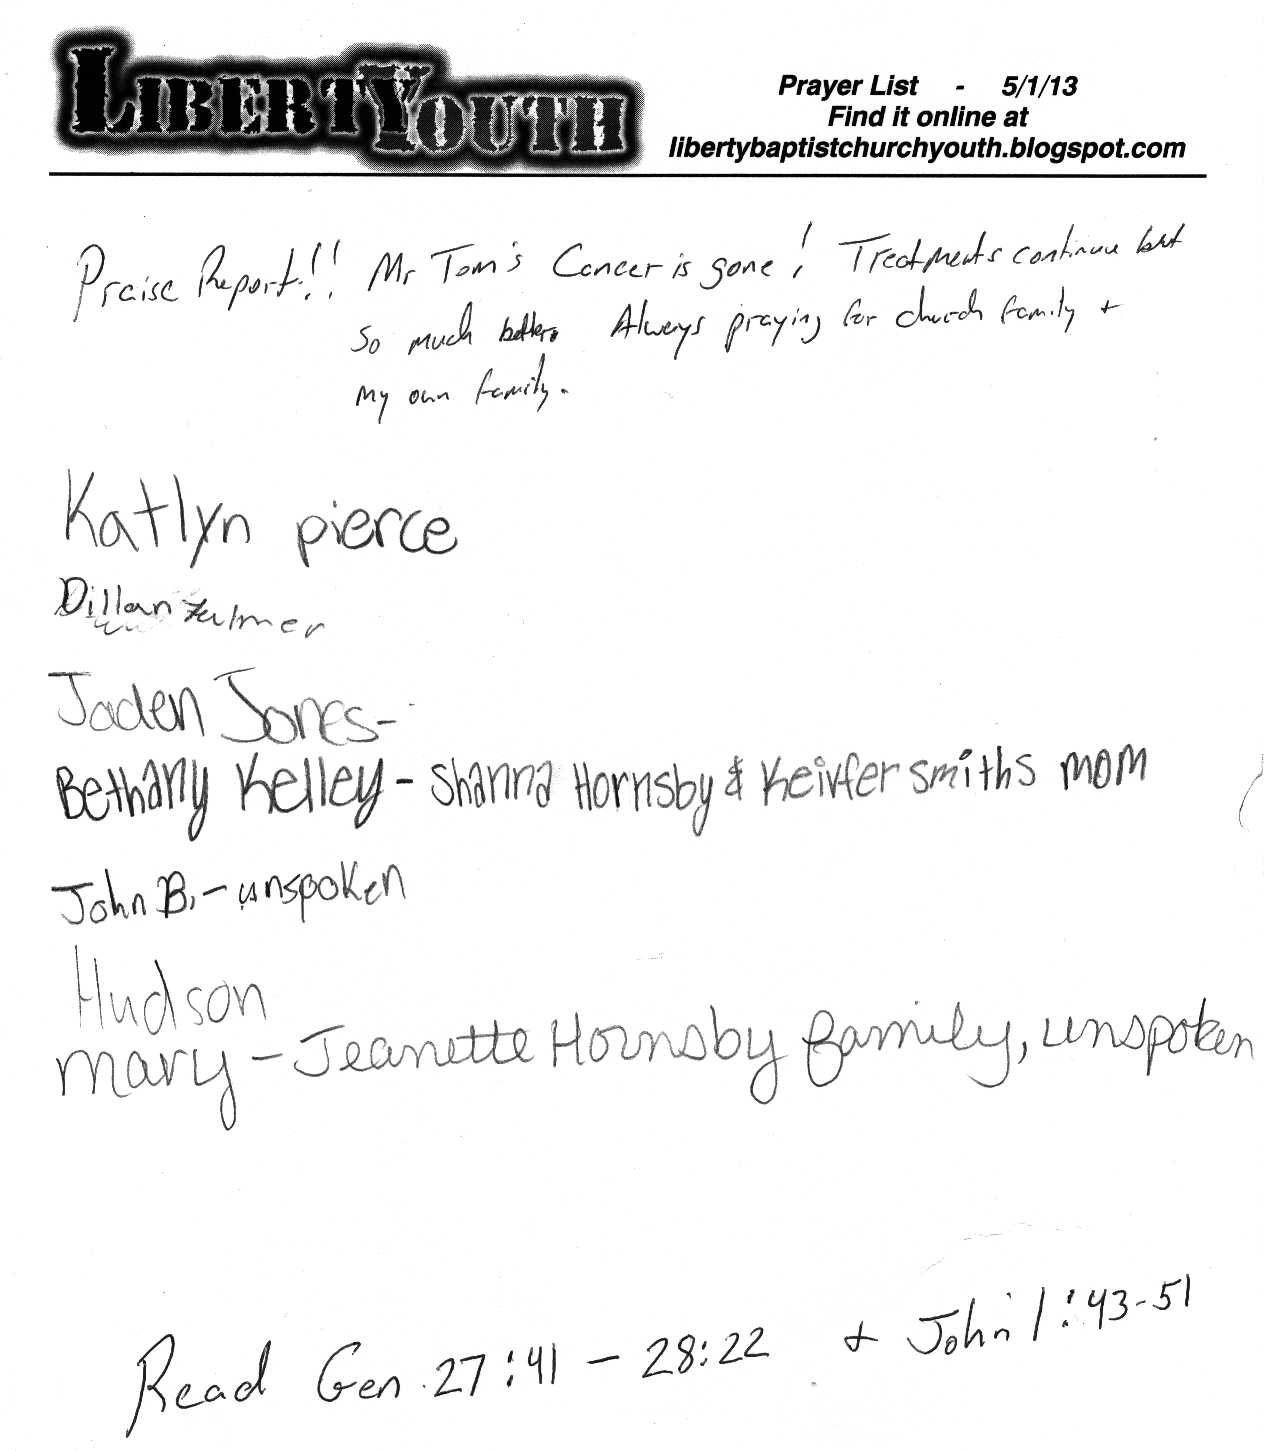 LIBERTYOUTH
Prayer List - 5/1/13
Find it online at
libertybaptistchurchyouth.blogspot.com
Praise Report!! Mr Tom's Cancer is gone! Treatments continue but
so much better. Always praying for church family +
my own family.
Katlyn pierce
Dillan Fulmer
Jaden Jones-
Bethany Kelley - Shanna Hornsby & Keivfer smiths mom
John B. - unspoken
Hudson
mary - Jeanette Hornsby family, unspoken
Read Gen. 27:41 - 28:22 + John 1:43-51